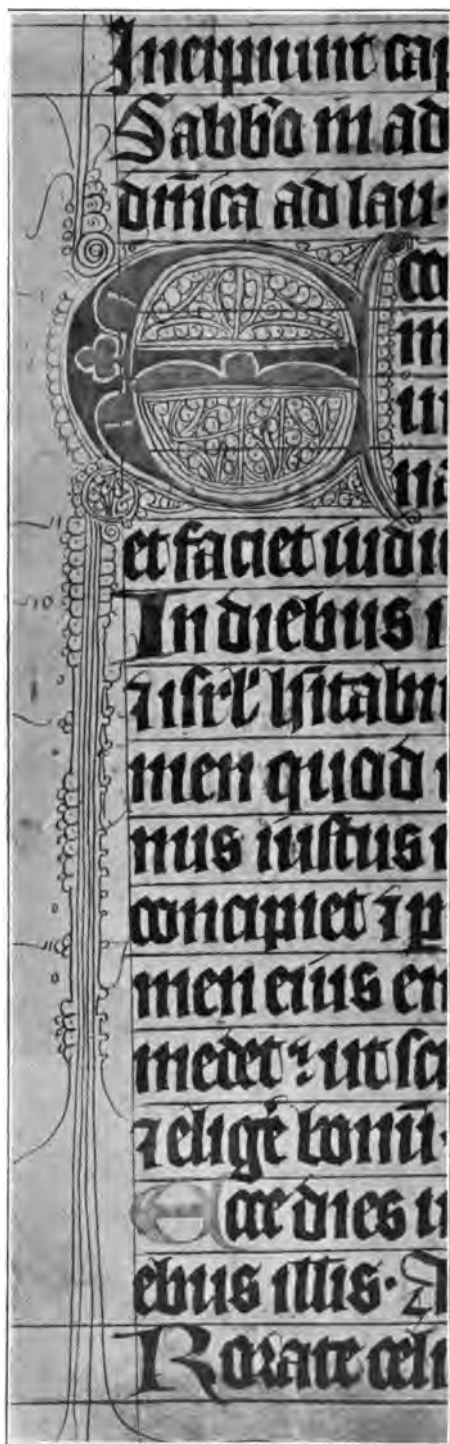 Incipiunt cap
Sabb̄o in ad
dn̄ica ad lau·
E cc
na
et faciet iudi
In diebus i
⁊ isrl̄ hītabu
men quod
nus iustus i
concipiet ⁊ p
men eius em
medet ⁊ ut sci
⁊ eligē bonū·
Ecce dies u
ebus illis·
Rorate celi